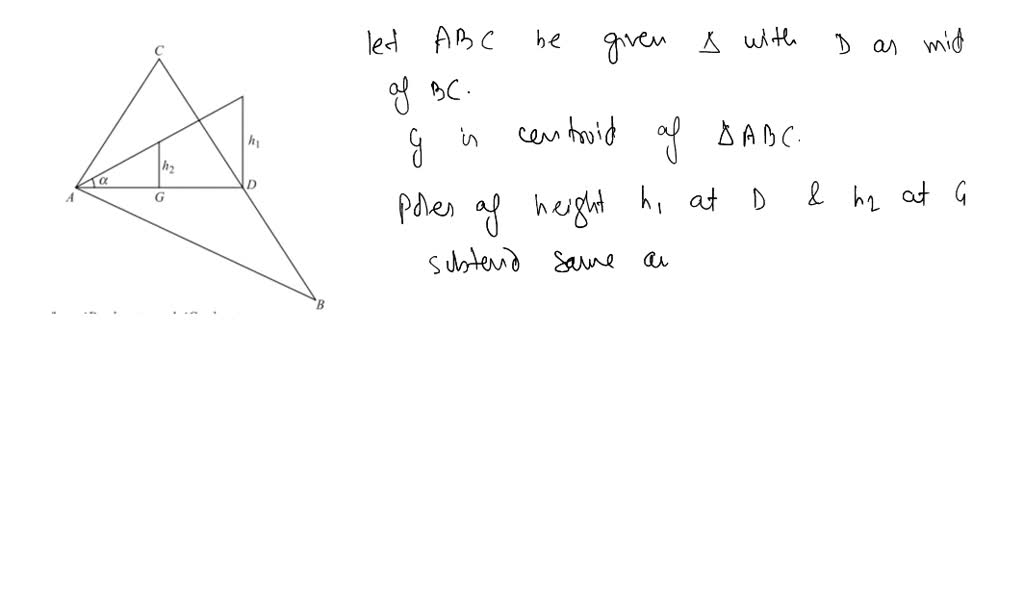 C
h₁
h₂
α
A
G
D
B
let ABC be given Δ with D as mid
of BC.
G is centroid of ΔABC.
Poles of height h₁ at D & h₂ at G
subtend same an